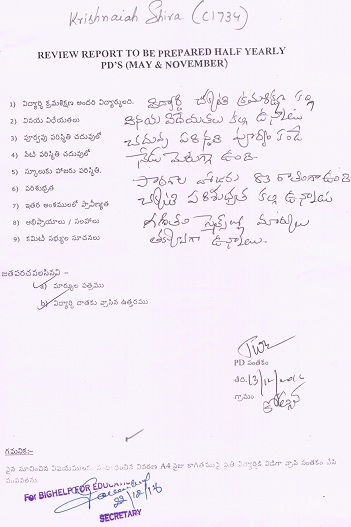 Krishnaiah Shiva (C1734)
REVIEW REPORT TO BE PREPARED HALF YEARLY
PD'S (MAY & NOVEMBER)
1) విద్యార్థి క్రమశిక్షణ అందరి విద్యార్థులంది. విద్యార్థి చక్కటి క్రమశిక్షణ కల్గి
2) వినయ విధేయతలు వినయ విధేయతలు కల్గి ఉన్నాయి
3) పూర్వపు పరిస్థితి చదువులో చదువు పరిస్థితి పూర్వం కంటే
4) నేటి పరిస్థితి చదువులో నేడు మెరుగ్గా ఉంది.
5) స్కూలుకు హాజరు పరిస్థితి. పాఠశాల హాజరు 83 శాతంగా ఉంది
6) పరిశుభ్రత చక్కటి పరిశుభ్రత కల్గి ఉన్నాయి
7) ఇతర అంశములలో ప్రావీణ్యత
8) అభిప్రాయాలు / సలహాలు గణితం మార్కులు
9) కమిటీ సభ్యుల సూచనలు తక్కువగా ఉన్నాయి.
జతపరచవలసినవి :-
a) మార్కుల పత్రము
b) విద్యార్థి దాతకు వ్రాసిన ఉత్తరము
PD సంతకం
తేది. 13/12/2016
గ్రామం
గమనిక:-
పైన సూచించిన విషయములకు వివరణ A4 సైజు కాగితముపై ప్రతి విద్యార్థికి విడిగా వ్రాసి సంతకం చేసి
పంపవలెను.
For BIGHELP FOR EDUCATION
22/12/16
SECRETARY